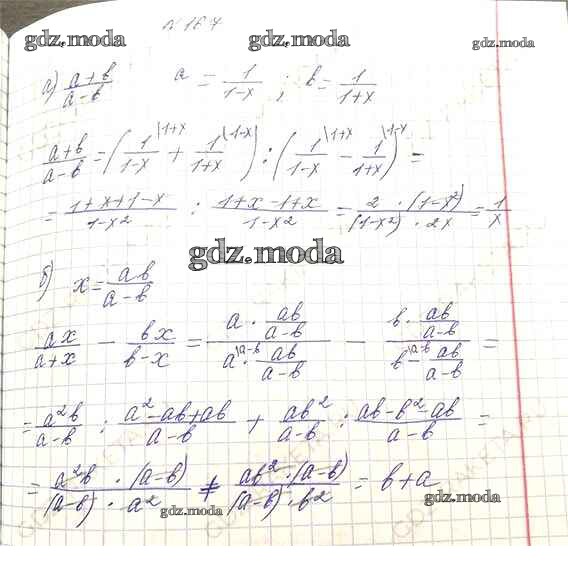 № 167
gdz.moda gdz.moda gdz.moda
а) (a+b)/(a-b) a = 1/(1-x) ; b = 1/(1+x)
(a+b)/(a-b) = (1/(1-x) |1+x + 1/(1+x) |1-x) : (1/(1-x) |1+x - 1/(1+x) |1-x) =
= (1+x+1-x)/(1-x²) : (1+x-1+x)/(1-x²) = (2·(1-x²))/((1-x²)·2x) = 1/x
gdz.moda
б) x = ab/(a-b)
ax/(a+x) - bx/(b-x) = (a · ab/(a-b))/(a |a-b · ab/(a-b)) - (b · ab/(a-b))/(b |a-b - ab/(a-b)) =
= a²b/(a-b) : (a²-ab+ab)/(a-b) + ab²/(a-b) : (ab-b²-ab)/(a-b) =
= (a²b · (a-b))/((a-b) · a²) + (ab² · (a-b))/((a-b) · b²) = b+a
gdz.moda gdz.moda gdz.moda